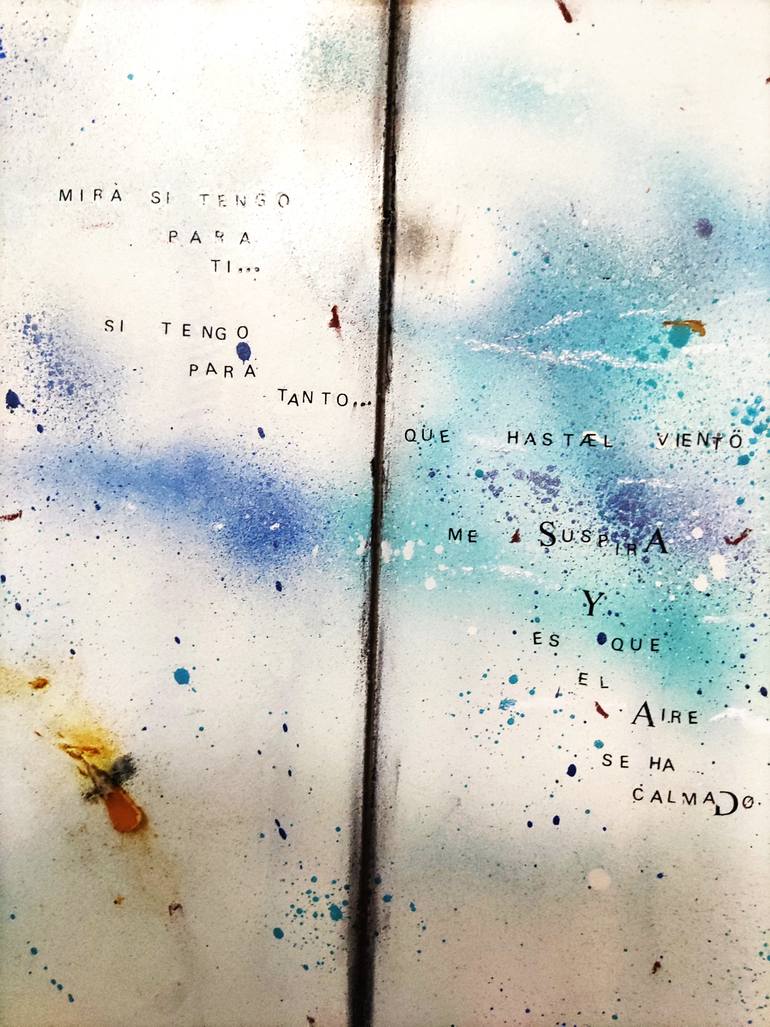 MIRÀ SI TENGO
PARA
TI...
SI TENGO
PARA
TANTO...
QUE HASTÆL VIENTÖ
ME SUSPIRA
Y
ES QUE
EL
AIRE
SE HA
CALMADO.